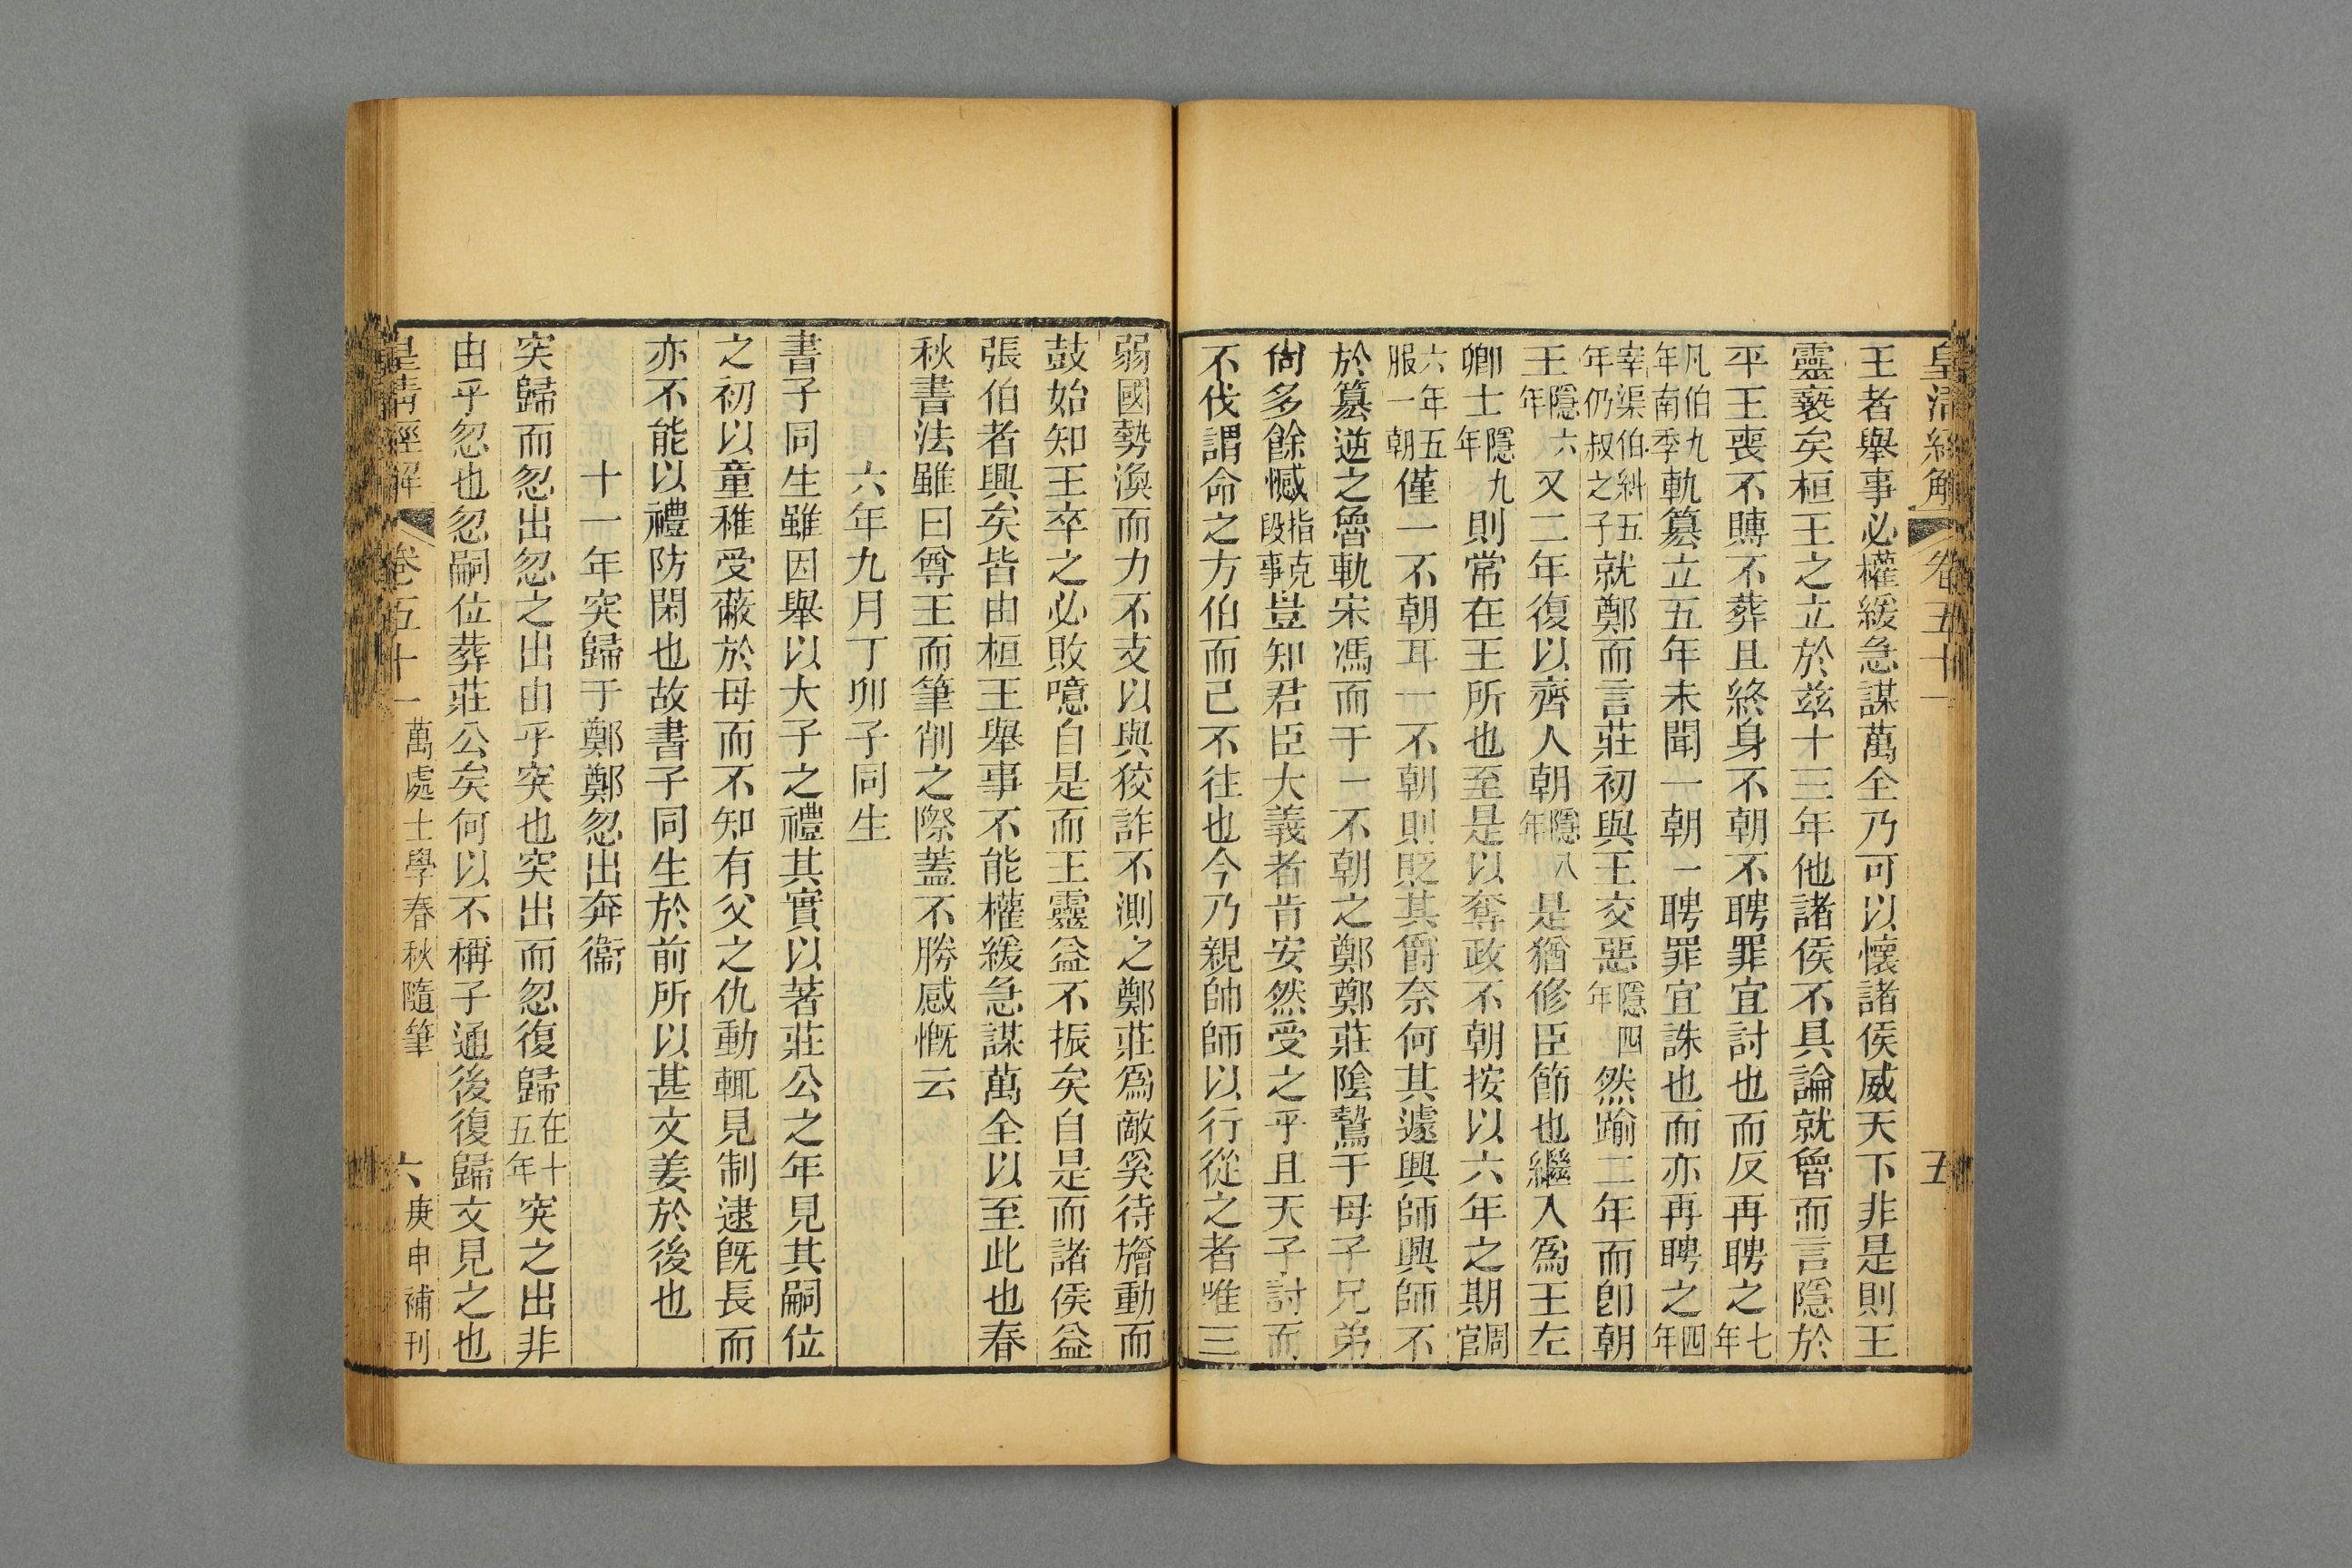 皇清經解 卷五十一 五
王者舉事必權緩急謀萬全乃可以懷諸侯威天下非是則王
靈褻矣桓王之立於茲十三年他諸侯不具論就魯而言隱於
平王喪不賻不葬且終身不朝不聘罪宜討也而反再聘之七年
凡伯九年南季軌篡立五年未聞一朝一聘罪宜誅也而亦再聘之四年
宰渠伯糾五年仍叔之子就鄭而言莊初與王交惡隱四年然踰二年而卽朝
王隱六年又二年復以齊人朝隱八年是猶修臣節也繼人爲王左
卿士隱九年則常在王所也至是以奪政不朝按以六年之期周官
六年五服一朝僅一不朝耳一不朝則貶其爵奈何其遽興師興師不
於篡逆之魯軌宋馮而于一不朝之鄭鄭莊陰鷙于母子兄弟
尙多餘憾指克段事豈知君臣大義者肯安然受之乎且天子討而
不伐謂命之方伯而己不往也今乃親帥師以行從之者唯三
弱國勢渙而力不支以與狡詐不測之鄭莊爲敵奚待旝動而
鼓始知王卒之必敗噫自是而王靈益不振矣自是而諸侯益
張伯者興矣皆由桓王舉事不能權緩急謀萬全以至此也春
秋書法雖曰尊王而筆削之際蓋不勝感慨云
六年九月丁卯子同生
書子同生雖因舉以大子之禮其實以著莊公之年見其嗣位
之初以童稚受蔽於母而不知有父之仇動輒見制逮旣長而
亦不能以禮防閑也故書子同生於前所以甚文姜於後也
十一年突歸于鄭鄭忽出奔衞
突歸而忽出忽之出由乎突也突出而忽復歸在十五年突之出非
由乎忽也忽嗣位葬莊公矣何以不稱子通後復歸文見之也
皇清經解 卷五十一 萬處士學春秋隨筆 六 庚申補刊